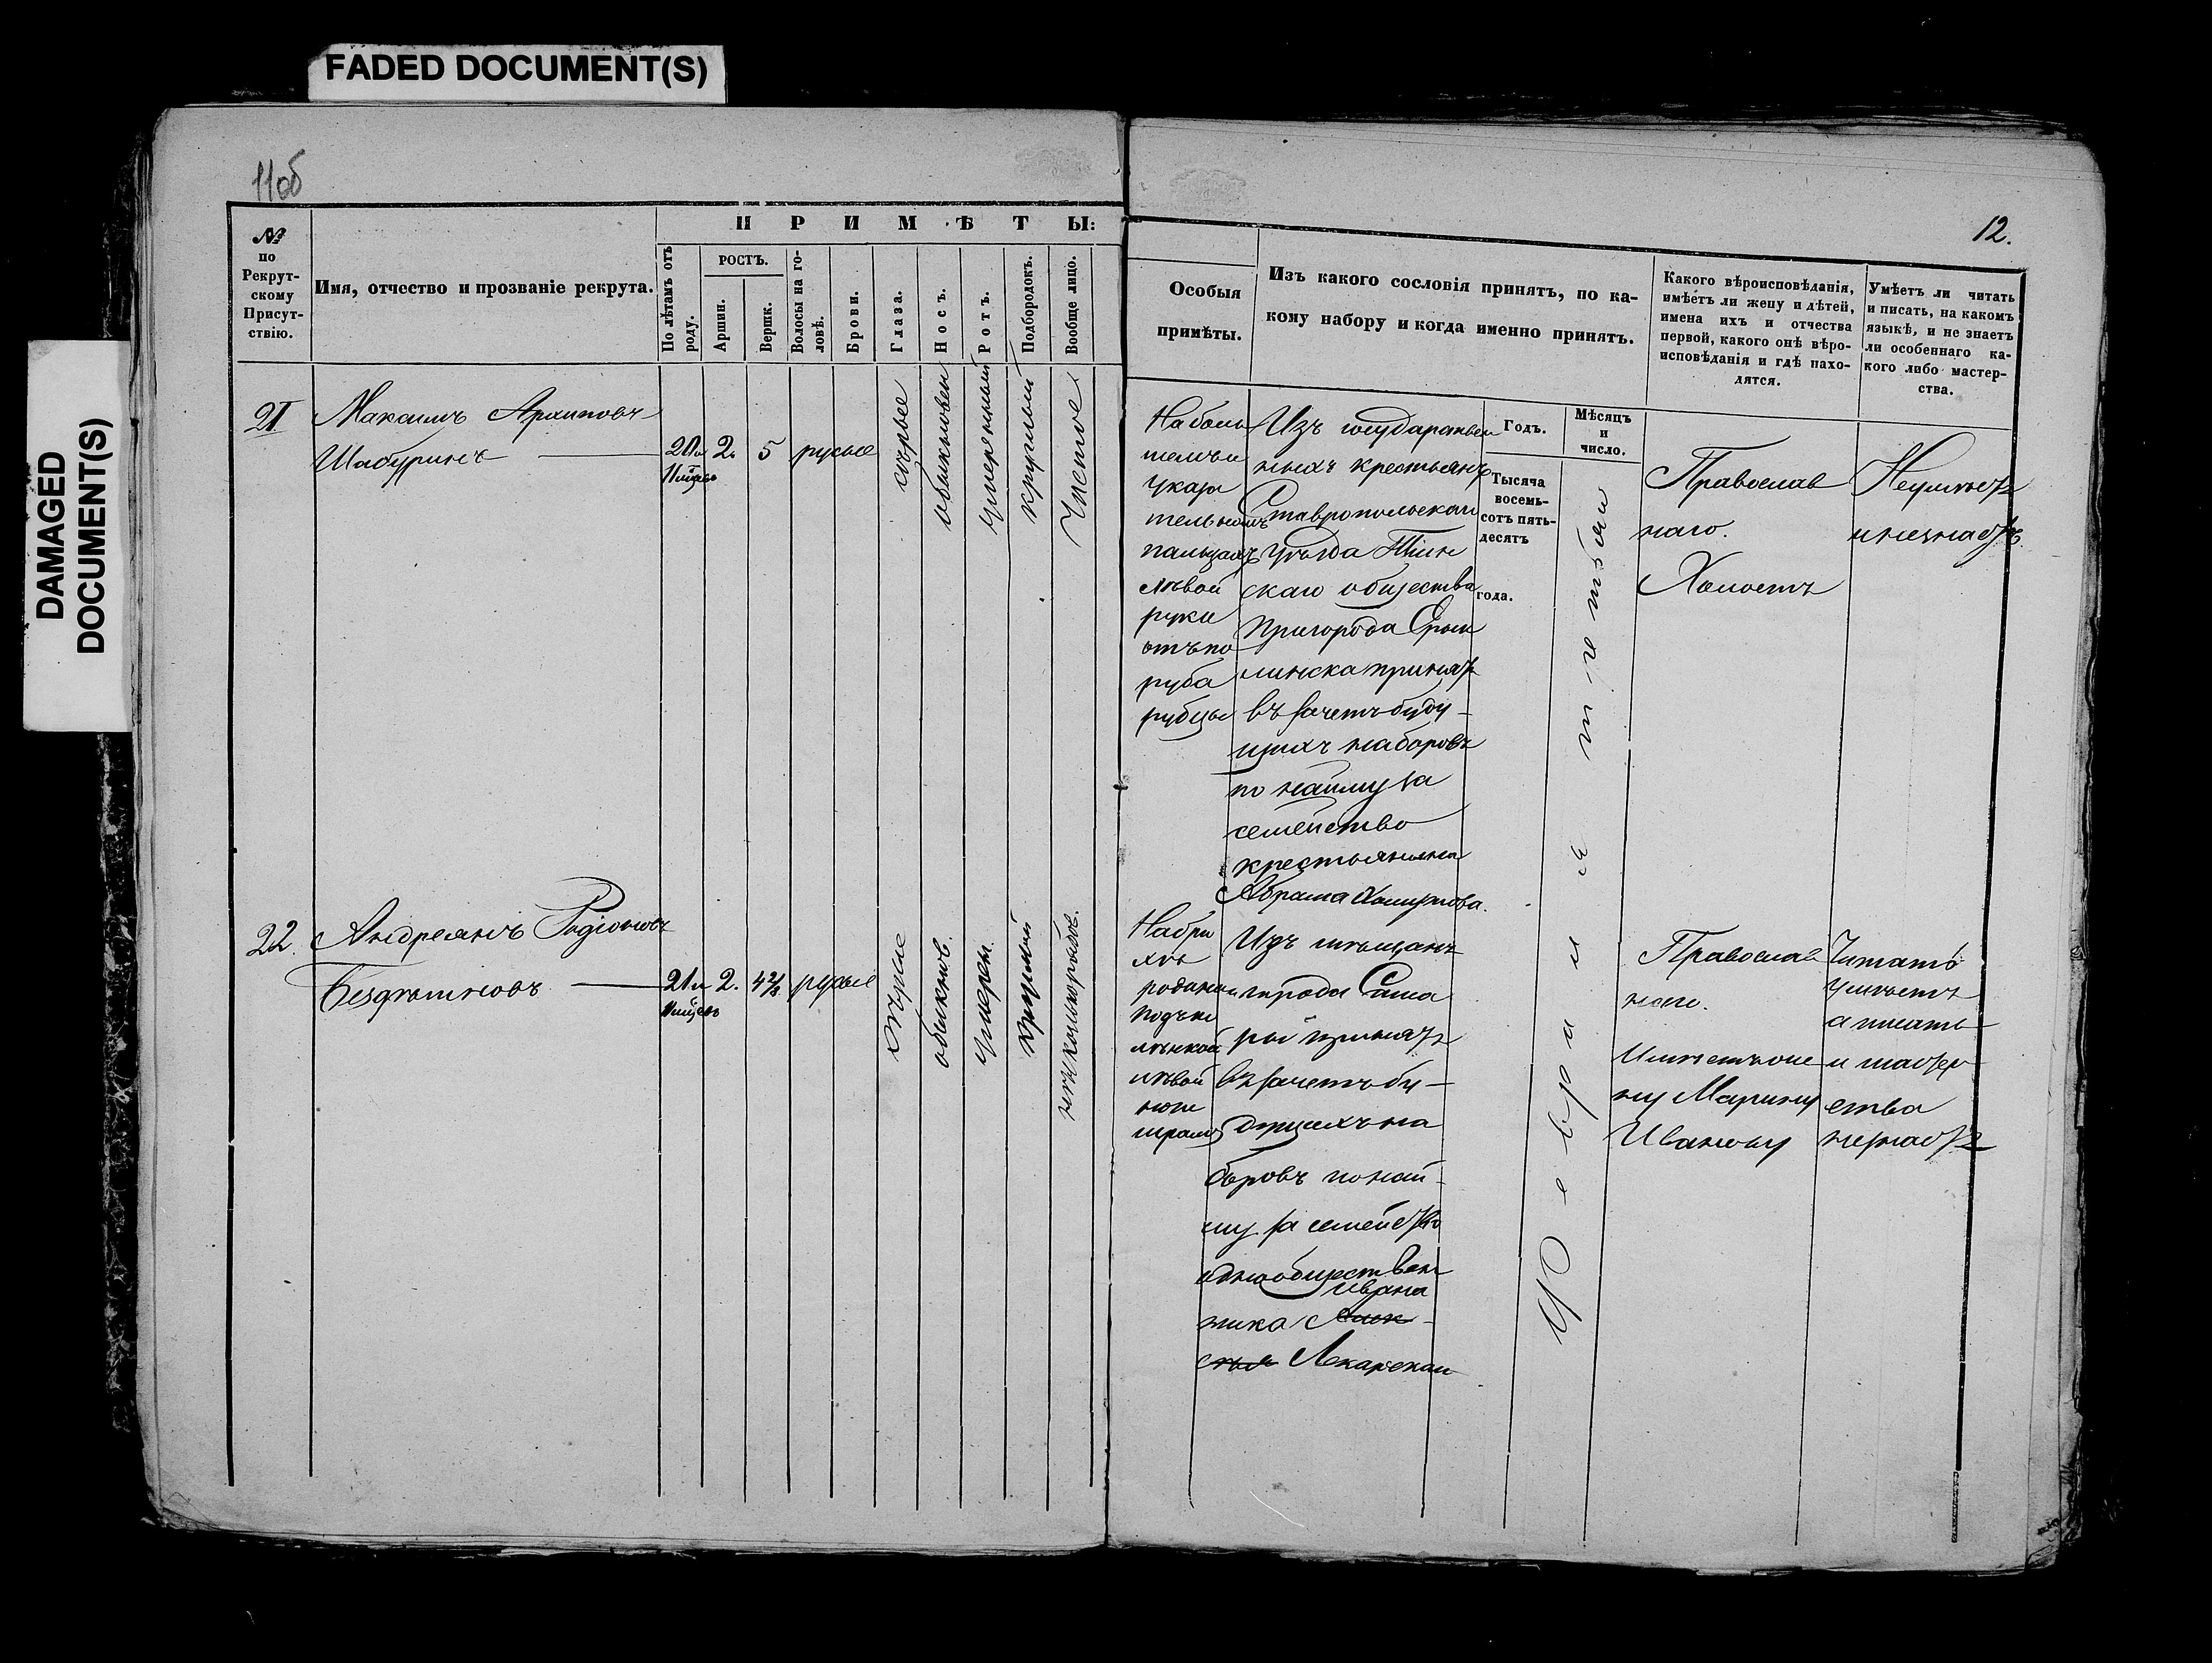 FADED DOCUMENT(S)
DAMAGED
DOCUMENT(S)
11об
12.
№
по
Рекрут-
скому
Присут-
ствію.
Имя, отчество и прозваніе рекрута.
ПРИМѢТЫ:
По лѣтамъ отъ
роду.
РОСТЪ.
Аршин.
Вершк.
Волосы на го-
ловѣ.
Брови.
Глаза.
Носъ.
Ротъ.
Подбородокъ.
Вообще лицо.
Особыя
примѣты.
Изъ какого сословія принятъ, по ка-
кому набору и когда именно принятъ.
Какого вѣроисповѣданія,
имѣетъ ли жену и дѣтей,
имена ихъ и отчества
первой, какого онѣ вѣро-
исповѣданія и гдѣ нахо-
дятся.
Умѣетъ ли читать
и писать, на какомъ
языкѣ, и не знаетъ
ли особеннаго ка-
кого либо мастер-
ства.
Годъ.
Мѣсяцъ
и
число.
Тысяча
восемь-
сотъ пять-
десятъ
года.
21
Максимъ Архиповъ
Шабуринъ
20 2. 5 русые
сѣрые
обыкновен
умеренный
круглый
Чистое
На боль
шемъ и
указа
тельномъ
пальцахъ
лѣвой
руки
отъ по
руба
рубцы
Изъ государствен
ныхъ крестьянъ
Ставропольскаго
уѣзда
скаго общества
пригорода Ерык
линска принятъ
въ зачетъ буду-
щихъ наборовъ
по найму за
семейство
крестьянина
Абрама
Февраля
Православ
наго.
Холостъ
Неумѣетъ
и незнаетъ.
22.
Андреянъ Родіоновъ
Бездѣтновъ
21 2. 4 2/8 русые
сѣрые
обыкнов.
умерен.
круглый
На брю
хѣ
родинка
подъ ко
лѣнкой
лѣвой
ноги
шрамъ
Изъ мѣщанъ
города Сама
ры принятъ
въ зачетъ бу-
дущихъ на
боровъ по най-
му за семейство
однообществен
Ивана
ника
Лекарскаго
Православ
наго.
Имѣетъ же
ну Марину
Иванову
Читать
умѣетъ
а писать
и мастер
ства
незнаетъ